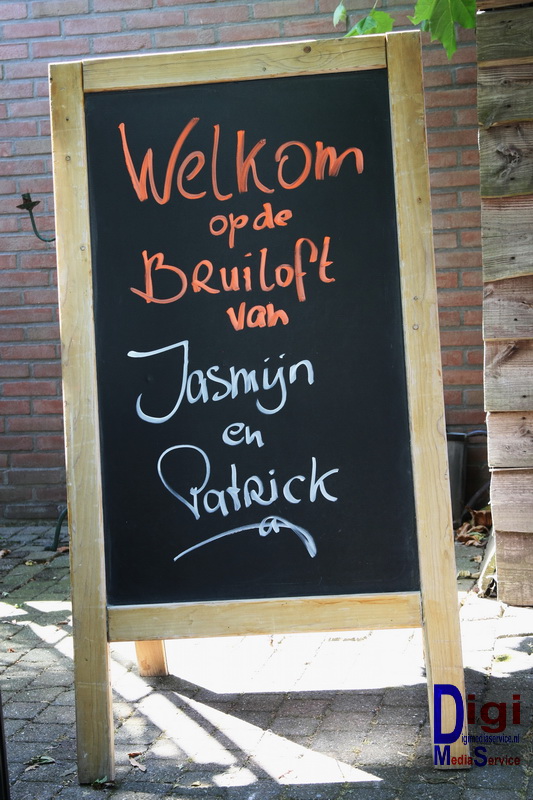 Welkom
op de
Bruiloft
van
Jasmijn
en
Patrick
Digi
Digimediaservice.nl
Media Service